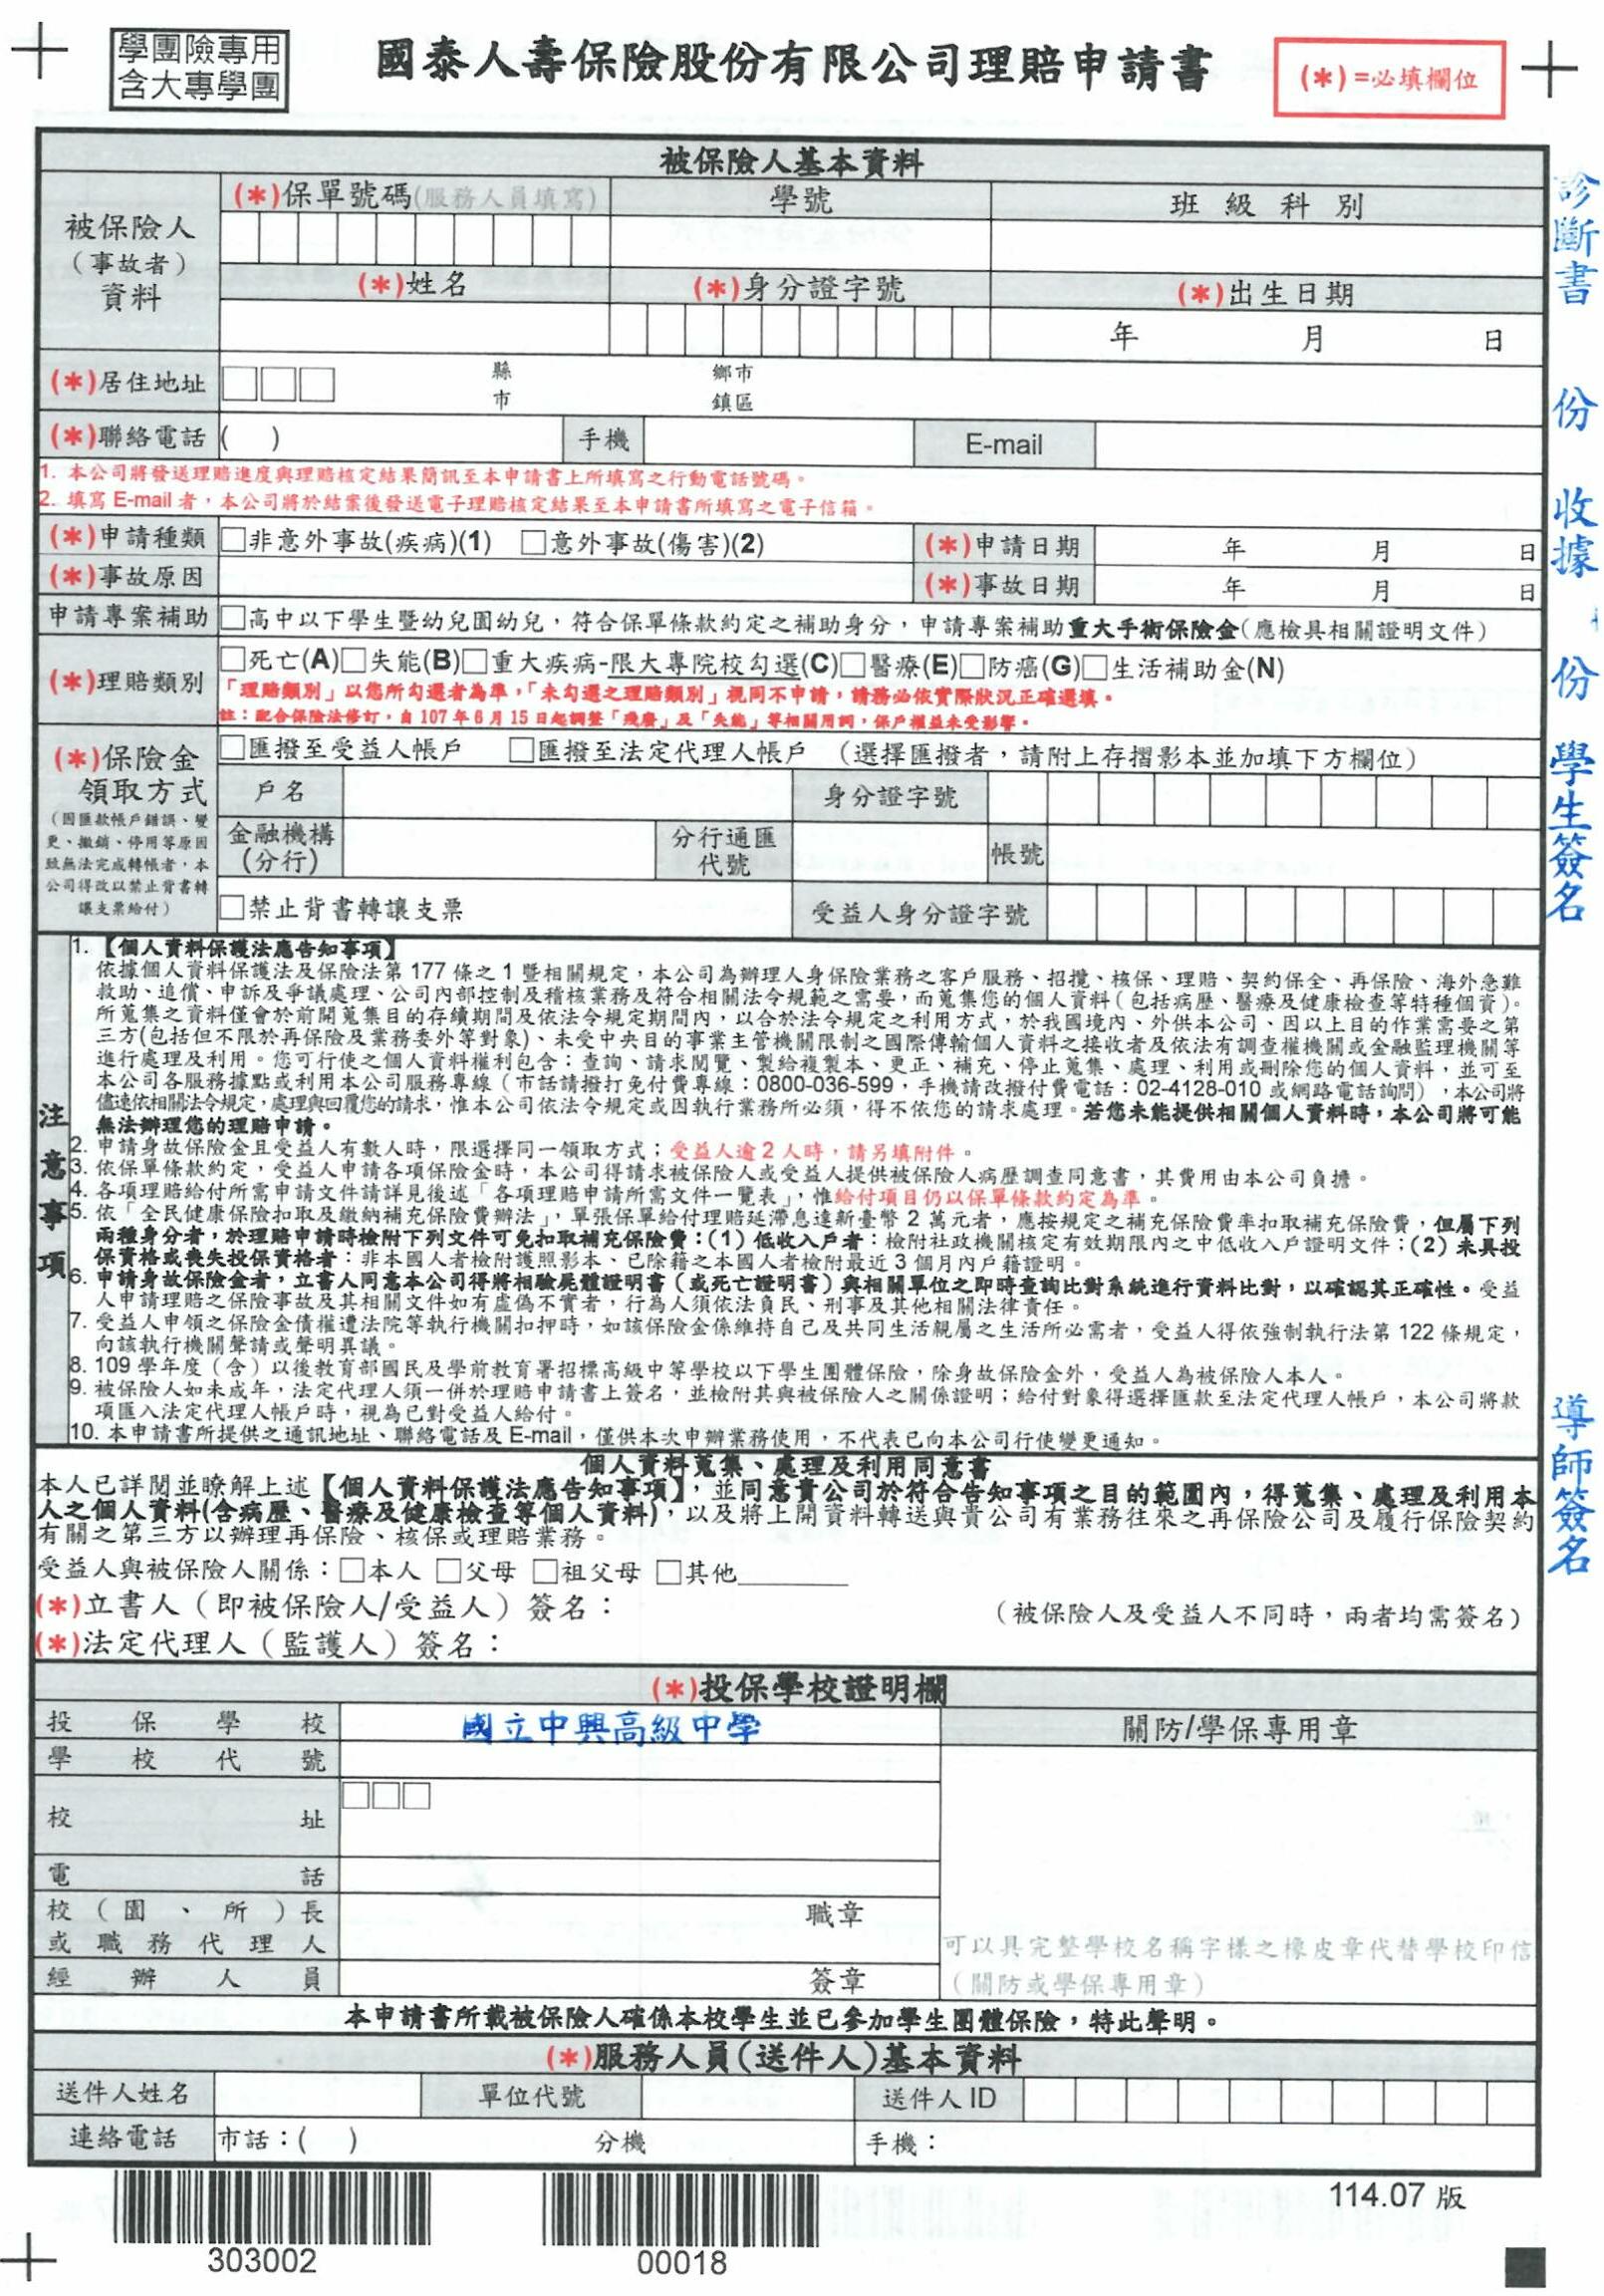 學團險專用
含大專學團
國泰人壽保險股份有限公司理賠申請書
(*)=必填欄位
被保險人基本資料
被保險人
(事故者)
資料
(*)保單號碼(服務人員填寫)
學號
班級科別
(*)姓名
(*)身分證字號
(*)出生日期
年 月 日
(*)居住地址
縣 鄉市
市 鎮區
(*)聯絡電話 ( ) 手機 E-mail
1. 本公司將發送理賠進度與理賠核定結果簡訊至本申請書上所填寫之行動電話號碼。
2. 填寫 E-mail 者，本公司將於結案後發送電子理賠核定結果至本申請書所填寫之電子信箱。
(*)申請種類 □非意外事故(疾病)(1) □意外事故(傷害)(2) (*)申請日期 年 月 日
(*)事故原因 (*)事故日期 年 月 日
申請專案補助 □高中以下學生暨幼兒園幼兒，符合保單條款約定之補助身分，申請專案補助重大手術保險金(應檢具相關證明文件)
(*)理賠類別 □死亡(A)□失能(B)□重大疾病-限大專院校勾選(C)□醫療(E)□防癌(G)□生活補助金(N)
「理賠類別」以您所勾選者為準，「未勾選之理賠類別」視同不申請，請務必依實際狀況正確選填。
註：配合保險法修訂，自 107 年 6 月 15 日起調整「殘廢」及「失能」等相關用詞，保戶權益未受影響。
(*)保險金
領取方式
(因匯款帳戶錯誤、變
更、撤銷、停用等原因
致無法完成轉帳者，本
公司得改以禁止背書轉
讓支票給付)
□匯撥至受益人帳戶 □匯撥至法定代理人帳戶 (選擇匯撥者，請附上存摺影本並加填下方欄位)
戶名 身分證字號
金融機構
(分行)
分行通匯
代號
帳號
□禁止背書轉讓支票 受益人身分證字號
注意事項
1.【個人資料保護法應告知事項】
依據個人資料保護法及保險法第 177 條之 1 暨相關規定，本公司為辦理人身保險業務之客戶服務、招攬、核保、理賠、契約保全、再保險、海外急難
救助、追償、申訴及爭議處理、公司內部控制及稽核業務及符合相關法令規範之需要，而蒐集您的個人資料(包括病歷、醫療及健康檢查等特種個資)。
所蒐集之資料僅會於前開蒐集目的存續期間及依法令規定期間內，以合於法令規定之利用方式，於我國境內、外供本公司、因以上目的作業需要之第
三方(包括但不限於再保險及業務委外等對象)、未受中央目的事業主管機關限制之國際傳輸個人資料之接收者及依法有調查權機關或金融監理機關等
進行處理及利用。您可行使之個人資料權利包含：查詢、請求閱覽、製給複製本、更正、補充、停止蒐集、處理、利用或刪除您的個人資料，並可至
本公司各服務據點或利用本公司服務專線(市話請撥打免付費專線：0800-036-599，手機請改撥付費電話：02-4128-010 或網路電話詢問)，本公司將
儘速依相關法令規定，處理與回覆您的請求，惟本公司依法令規定或因執行業務所必須，得不依您的請求處理。若您未能提供相關個人資料時，本公司將可能
無法辦理您的理賠申請。
2. 申請身故保險金且受益人有數人時，限選擇同一領取方式；受益人逾 2 人時，請另填附件。
3. 依保單條款約定，受益人申請各項保險金時，本公司得請求被保險人或受益人提供被保險人病歷調查同意書，其費用由本公司負擔。
4. 各項理賠給付所需申請文件請詳見後述「各項理賠申請所需文件一覽表」，惟給付項目仍以保單條款約定為準。
5. 依「全民健康保險扣取及繳納補充保險費辦法」，單張保單給付理賠延滯息達新臺幣 2 萬元者，應按規定之補充保險費率扣取補充保險費，但屬下列
兩種身分者，於理賠申請時檢附下列文件可免扣取補充保險費：(1) 低收入戶者：檢附社政機關核定有效期限內之中低收入戶證明文件；(2) 未具投
保資格或喪失投保資格者：非本國人者檢附護照影本、已除籍之本國人者檢附最近 3 個月內戶籍證明。
6. 申請身故保險金者，立書人同意本公司得將相驗屍體證明書(或死亡證明書)與相關單位之即時查詢比對系統進行資料比對，以確認其正確性。受益
人申請理賠之保險事故及其相關文件如有虛偽不實者，行為人須依法負民、刑事及其他相關法律責任。
7. 受益人申領之保險金債權遭法院等執行機關扣押時，如該保險金係維持自己及共同生活親屬之生活所必需者，受益人得依強制執行法第 122 條規定，
向該執行機關聲請或聲明異議。
8. 109 學年度(含)以後教育部國民及學前教育署招標高級中等學校以下學生團體保險，除身故保險金外，受益人為被保險人本人。
9. 被保險人如未成年，法定代理人須一併於理賠申請書上簽名，並檢附其與被保險人之關係證明；給付對象得選擇匯款至法定代理人帳戶，本公司將款
項匯入法定代理人帳戶時，視為已對受益人給付。
10. 本申請書所提供之通訊地址、聯絡電話及 E-mail，僅供本次申辦業務使用，不代表已向本公司行使變更通知。
個人資料蒐集、處理及利用同意書
本人已詳閱並瞭解上述【個人資料保護法應告知事項】，並同意貴公司於符合告知事項之目的範圍內，得蒐集、處理及利用本
人之個人資料(含病歷、醫療及健康檢查等個人資料)，以及將上開資料轉送與貴公司有業務往來之再保險公司及履行保險契約
有關之第三方以辦理再保險、核保或理賠業務。
受益人與被保險人關係：□本人 □父母 □祖父母 □其他
(*)立書人(即被保險人/受益人)簽名： (被保險人及受益人不同時，兩者均需簽名)
(*)法定代理人(監護人)簽名：
(*)投保學校證明欄
投保學校 國立中興高級中學 關防/學保專用章
學校代號
校址
電話
校(園、所)長
或職務代理人
職章
經辦人員 簽章
可以具完整學校名稱字樣之橡皮章代替學校印信
(關防或學保專用章)
本申請書所載被保險人確係本校學生並已參加學生團體保險，特此聲明。
(*)服務人員(送件人)基本資料
送件人姓名 單位代號 送件人 ID
連絡電話 市話：( ) 分機 手機：
303002
00018
114.07 版
診斷書 份 收據 份 學生簽名
導師簽名